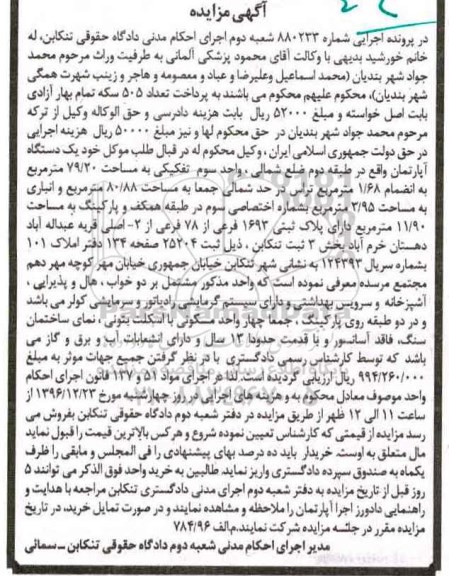 آگهی مزایده
در پرونده اجرایی شماره ۸۸۰۲۳۳ شعبه دوم اجرای احکام مدنی دادگاه حقوقی تنکابن، له
خانم خورشید بدیهی با وکالت آقای محمود پزشکی آلمانی به طرفیت وراث مرحوم محمد
جواد شهر بندیان (محمد اسماعیل وعلیرضا و عباد و معصومه و هاجر و زینب شهرت همگی
شهر بندیان)، محکوم علیهم محکوم می باشند به پرداخت تعداد ۵۰۵ سکه تمام بهار آزادی
بابت اصل خواسته و مبلغ ۵۲۰۰۰ ریال بابت هزینه دادرسی و حق الوکاله وکیل از ترکه
مرحوم محمد جواد شهر بندیان در حق محکوم لها و نیز مبلغ ۵۰۰۰۰ ریال هزینه اجرایی
در حق دولت جمهوری اسلامی ایران، وکیل محکوم له در قبال طلب موکل خود یک دستگاه
آپارتمان واقع در طبقه دوم ضلع شمالی، واحد سوم تفکیکی به مساحت ۷۹/۲۰ مترمربع
به انضمام ۱/۶۸ مترمربع تراس در حد شمالی جمعا به مساحت ۸۰/۸۸ مترمربع و انباری
به مساحت ۳/۹۵ مترمربع بشماره اختصاصی سوم در طبقه همکف و پارکینگ به مساحت
۱۱/۹۰ مترمربع دارای پلاک ثبتی ۱۶۹۳ فرعی از ۷۸ فرعی از ۲- اصلی قریه عبداله آباد
دهستان خرم آباد بخش ۳ ثبت تنکابن، ذیل ثبت ۲۵۲۰۴ صفحه ۱۳۴ دفتر املاک ۱۰۱
بشماره سریال ۱۲۴۳۹۳ به نشانی شهر تنکابن خیابان جمهوری خیابان مهر کوچه مهر دهم
مجتمع مرسده معرفی نموده است که واحد مذکور مشتمل بر دو خواب، هال و پذیرایی،
آشپزخانه و سرویس بهداشتی و دارای سیستم گرمایشی رادیاتور و سرمایشی کولر می باشد
و در دو طبقه روی پارکینگ، جمعا چهار واحد مسکونی با اسکلت بتونی، نمای ساختمان
سنگ، فاقد آسانسور و با قدمت حدودا ۱۳ سال و دارای انشعابات آب و برق و گاز می
باشد که توسط کارشناس رسمی دادگستری با در نظر گرفتن جمیع جهات موثر به مبلغ
۹۹۴/۲۶۰/۰۰۰ ریال ارزیابی گردیده است. لذا در اجرای مواد ۵۱ و ۱۳۷ قانون اجرای احکام
واحد موصوف معادل محکوم به و هزینه های اجرایی در روز چهارشنبه مورخ ۱۳۹۶/۱۲/۲۳ از
ساعت ۱۱ الی ۱۲ ظهر از طریق مزایده در دفتر شعبه دوم دادگاه حقوقی تنکابن بفروش می
رسد مزایده از قیمتی که کارشناس تعیین نموده شروع و هرکس بالاترین قیمت را قبول نماید
مال متعلق به اوست. خریدار باید ده درصد بهای پیشنهادی را فی المجلس و مابقی را ظرف
یکماه به صندوق سپرده دادگستری واریز نماید. طالبین به خرید واحد فوق الذکر می توانند ۵
روز قبل از تاریخ مزایده به دفتر شعبه دوم اجرای مدنی دادگستری تنکابن مراجعه با هدایت و
راهنمایی دادورز اجرا آپارتمان را ملاحظه و مشاهده نمایند و در صورت تمایل خرید، در تاریخ
مزایده مقرر در جلسه مزایده شرکت نمایند.م‌الف ۷۸۴/۹۶
مدیر اجرای احکام مدنی شعبه دوم دادگاه حقوقی تنکابن – سمائی